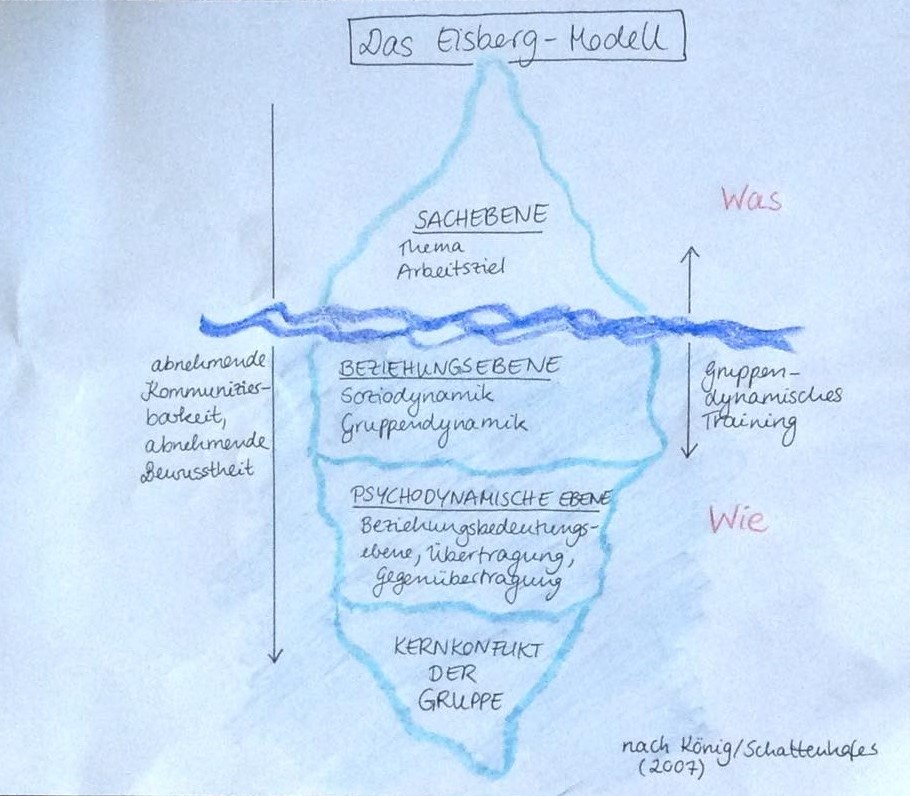 Das Eisberg-Modell
Was
SACHEBENE
Thema
Arbeitsziel
abnehmende
Kommunizier-
barkeit,
abnehmende
Bewusstheit
BEZIEHUNGSEBENE
Soziodynamik
Gruppendynamik
Gruppen-
dynamisches
Training
PSYCHODYNAMISCHE EBENE
Beziehungsbedeutungs-
ebene, Übertragung,
Gegenübertragung
Wie
KERNKONFLIKT
DER
GRUPPE
nach König/Schattenhofer
(2007)